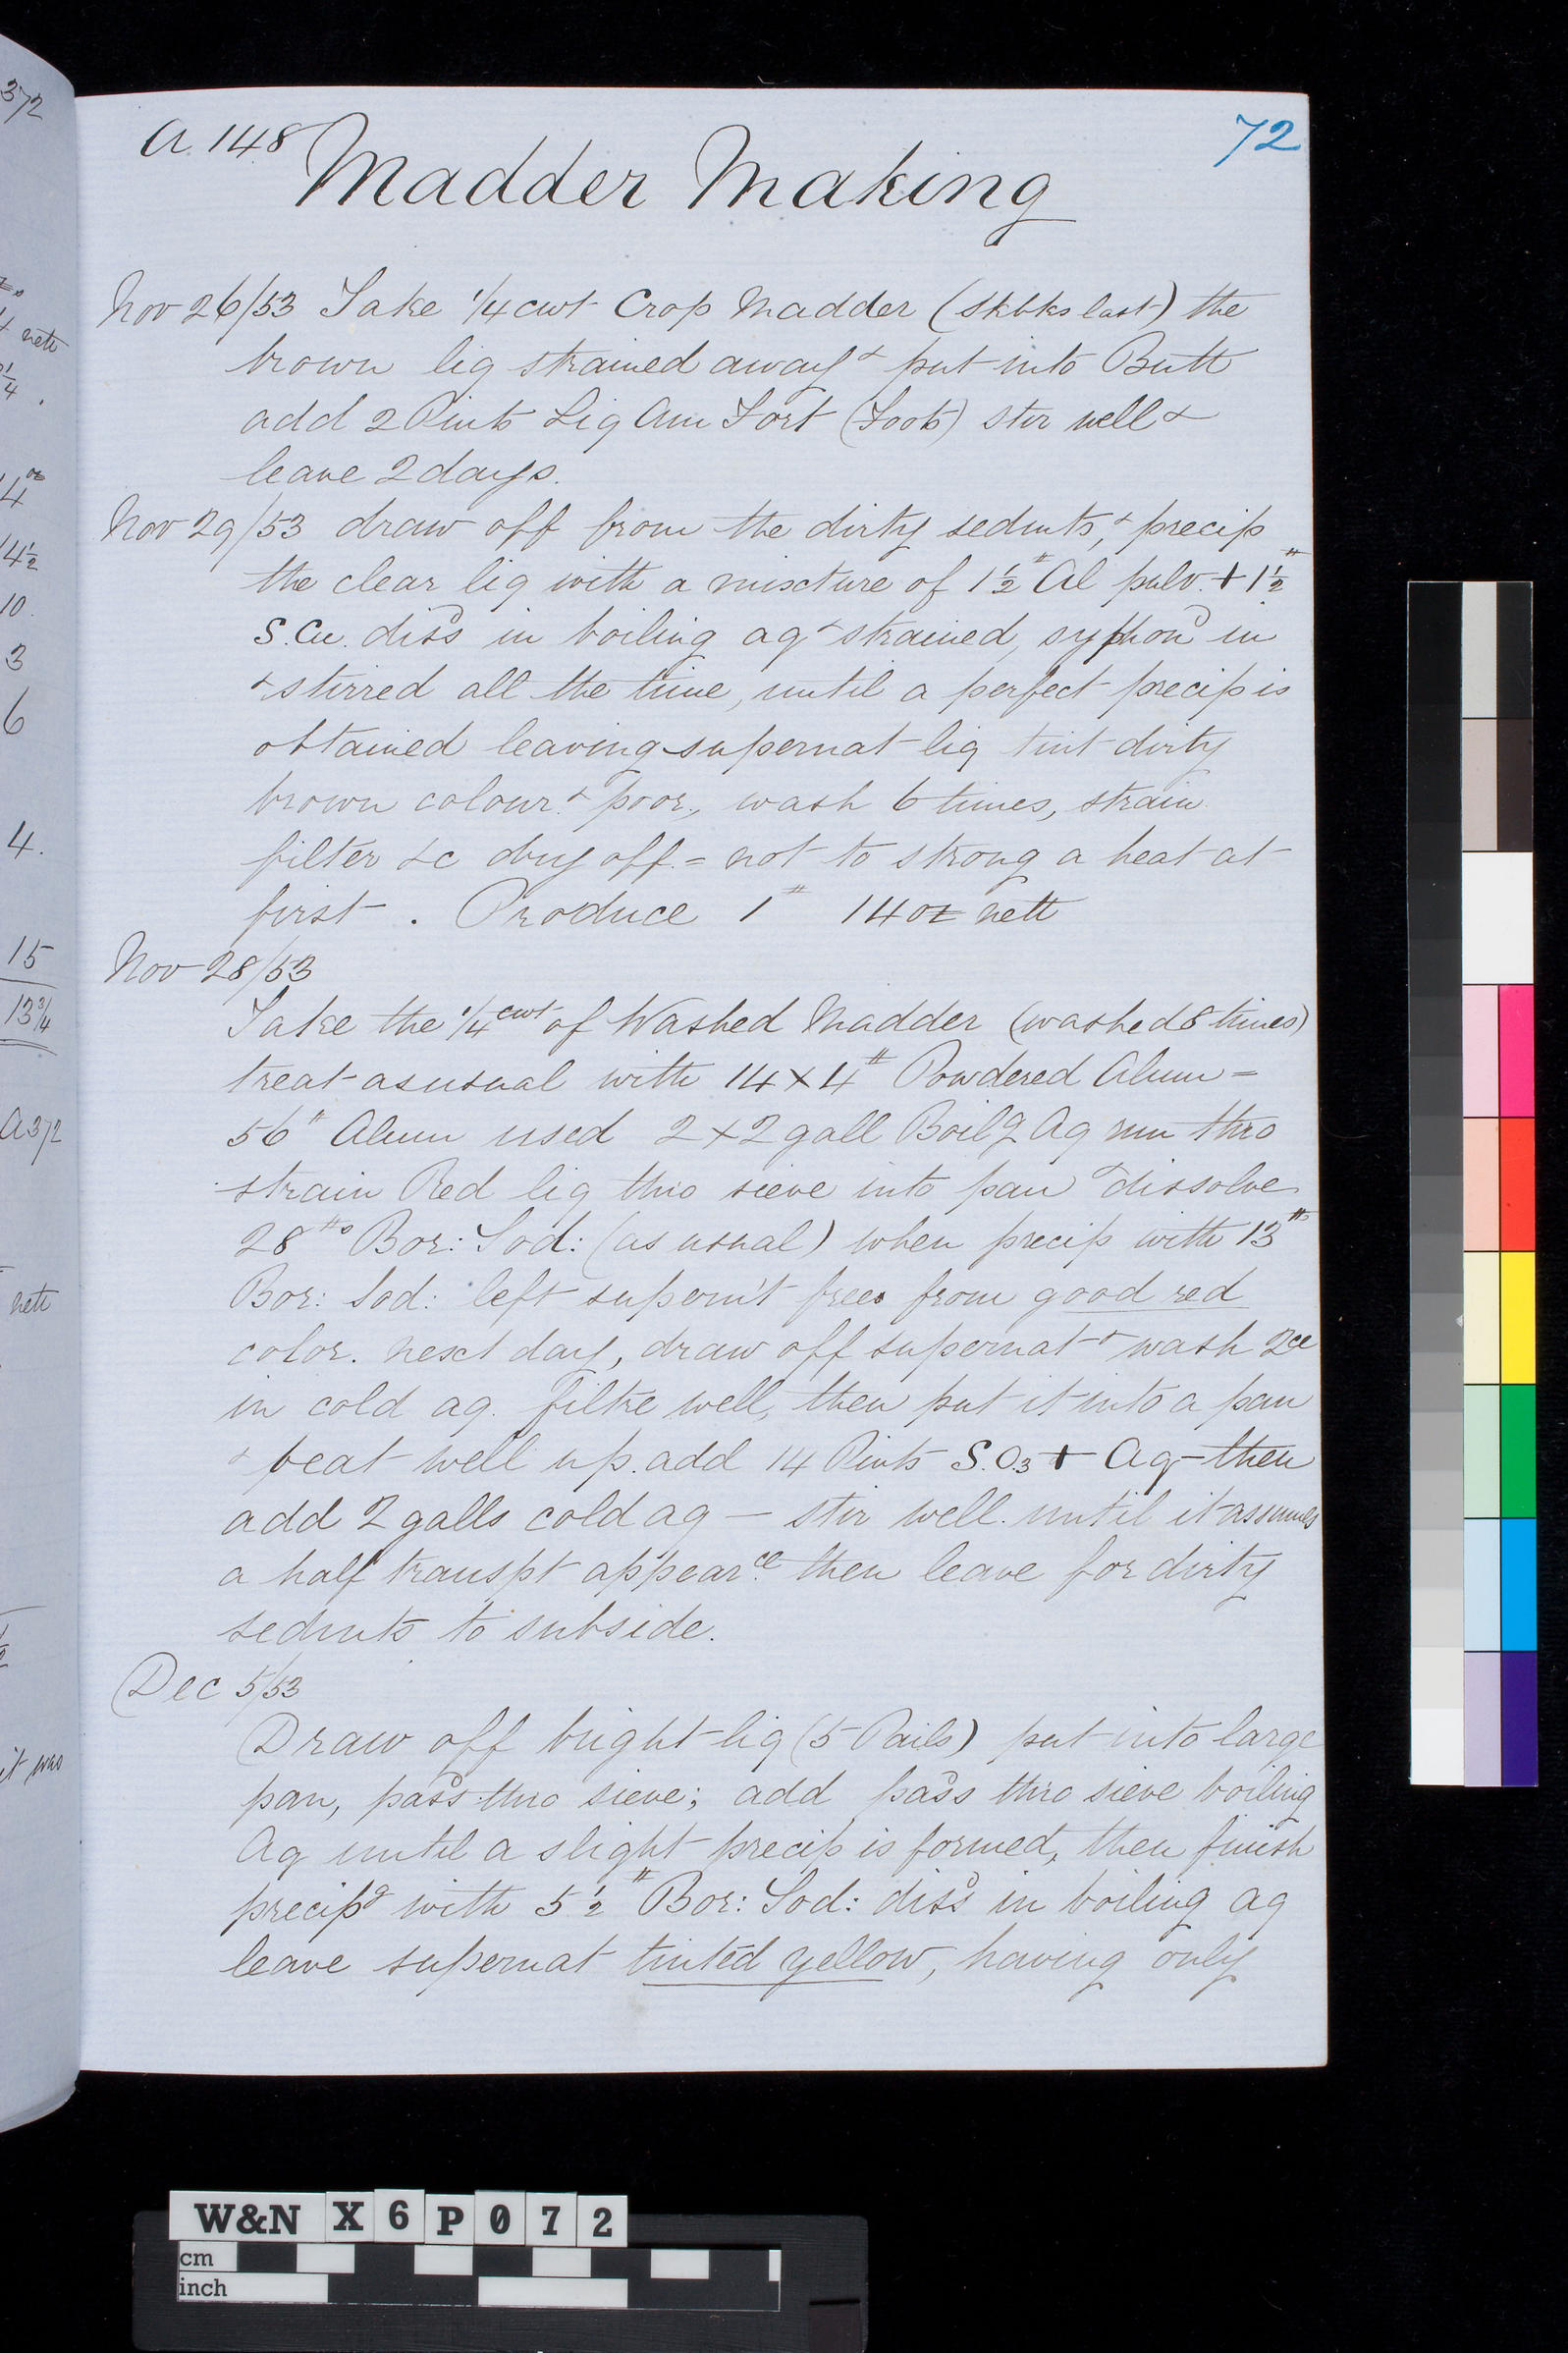 372
nett
1/4
4 oz
14 1/2
10.
3
6
4.
15
13 3/4
A372
nett
it was
A 148
72
Madder Making
Nov 26/53 Take 1/4 cwt Crop Madder (Skbks last) the
brown liq strained away & put into Butt
add 2 Pints Liq Am Fort (Foots) stir well &
leave 2 days.
Nov 29/53 draw off from the dirty sedmts, & precip
the clear liq with a mixture of 1 1/2 # Al pulv. + 1 1/2 #
S. Cu. diss'd in boiling aq & strained, syphon'd in
& stirred all the time, until a perfect precip is
obtained leaving supernat liq tint dirty
brown colour & poor, wash 6 times, strain
filter &c dry off = not to strong a heat at
first. Produce 1 # 14 oz nett
Nov 28/53
Take the 1/4 cwt of Washed Madder (washed 8 times)
treat as usual with 14 x 4 # Powdered Alum =
56 " Alum used 2 x 2 gall Boilg Aq run thro
strain Red liq thro sieve into pan & dissolve
28 #s Bor: Sod: (as usual) when precip with 13 #s
Bor: Sod: left supern't free from good red
color. next day, draw off supernat & wash 2ce
in cold aq. filtre well, then put it into a pan
& beat well up. add 14 Pints S.O3 + Aq - then
add 2 galls cold aq — stir well. until it assumes
a half transpt appearce. then leave for dirty
sedmts to subside.
Dec 5/53
Draw off bright liq (5 Pails) put into large
pan, pass'd thro sieve; add pass'd thro sieve boiling
Aq until a slight precip is formed, then finish
precipg with 5 1/2 # Bor: Sod: diss'd in boiling aq
leave supernat tinted yellow, having only
W&N X6P072
cm
inch